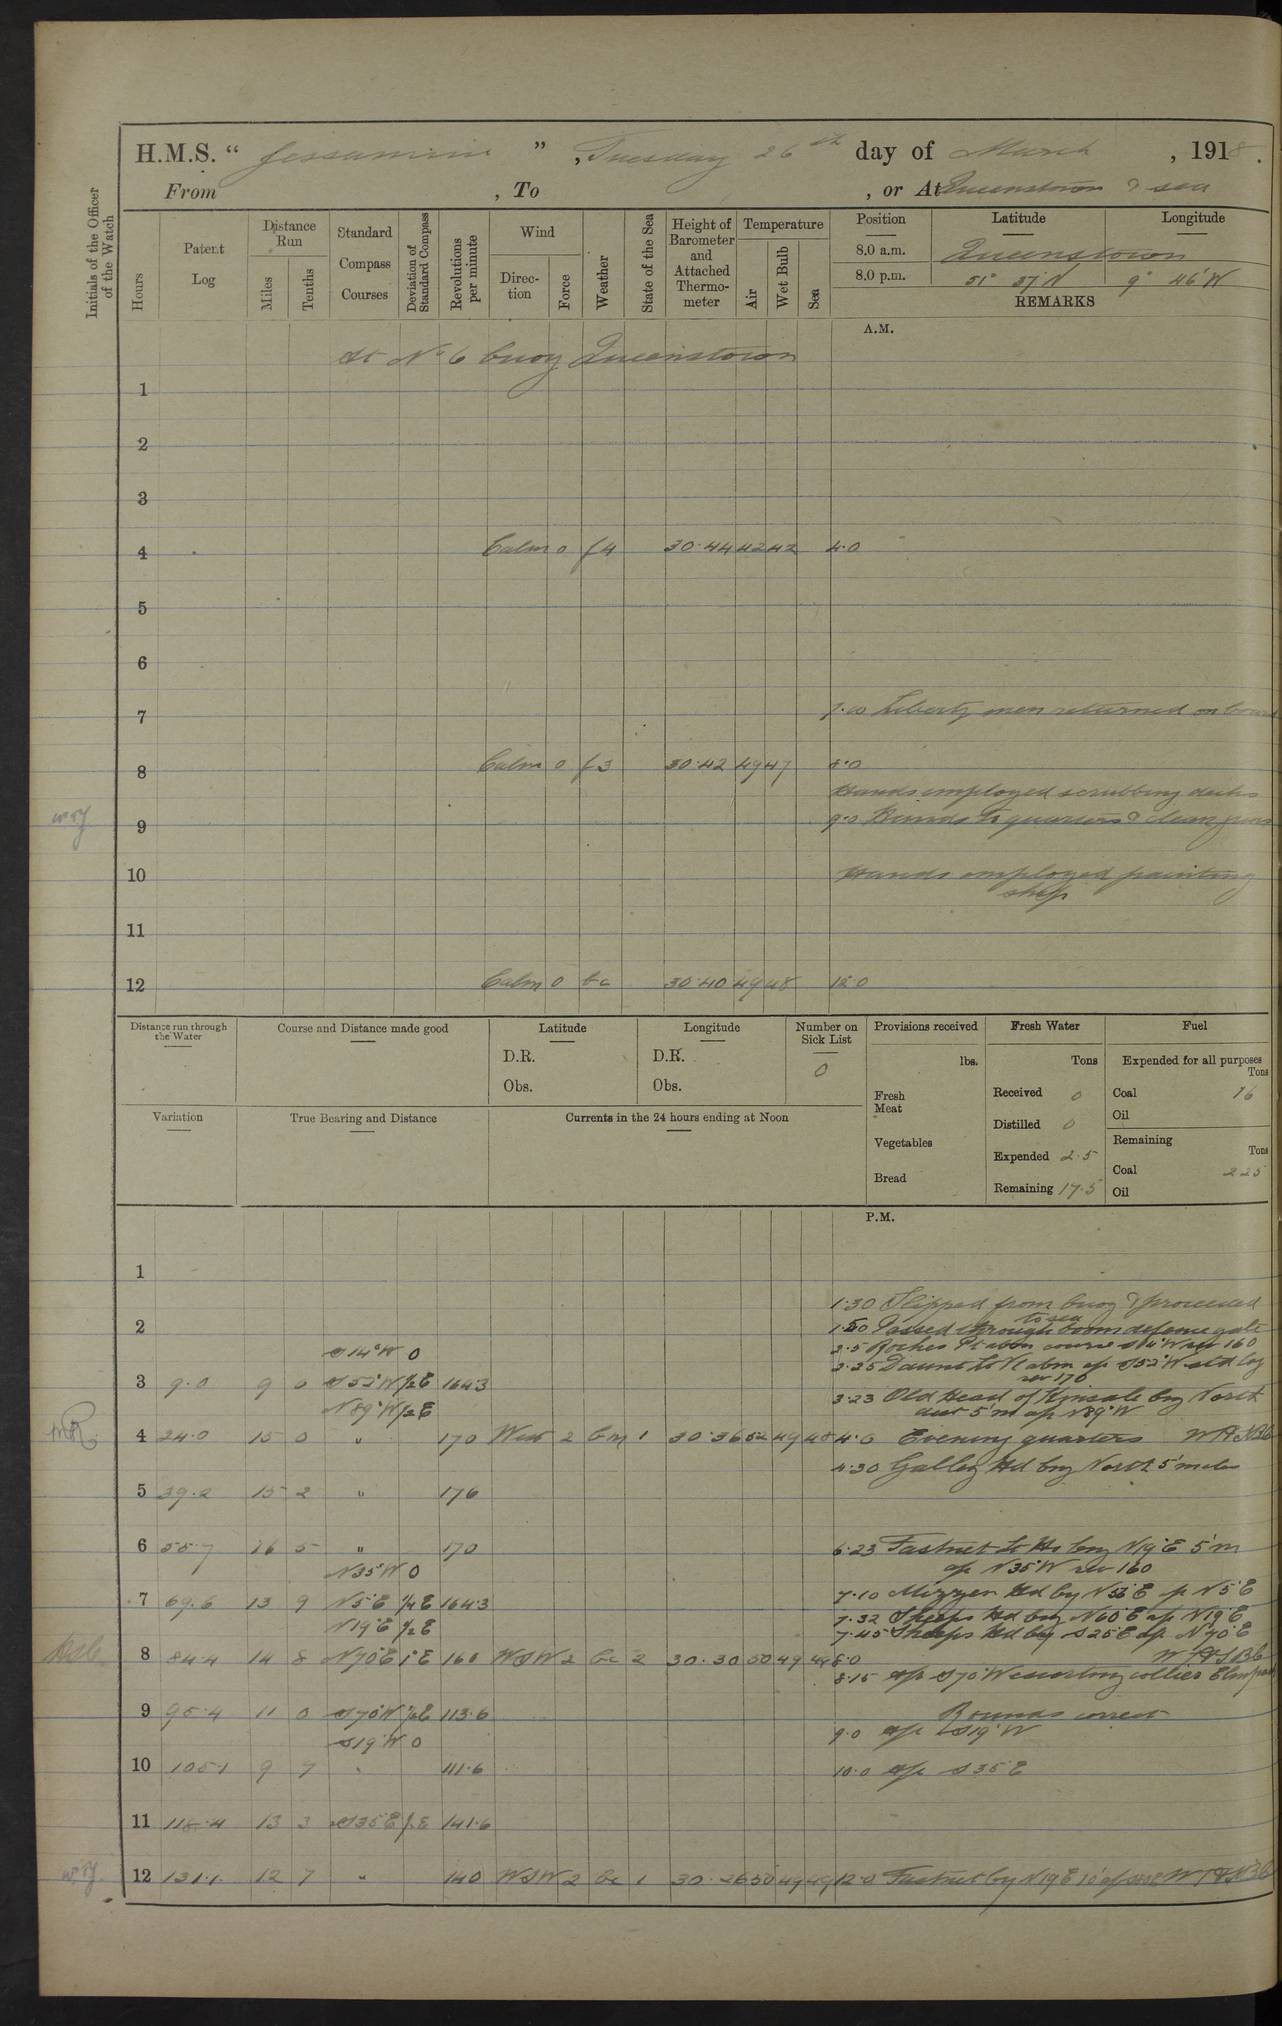 H.M.S. " Jessamine " , Tuesday 26th day of March , 1918 .
From , To , or At Queenstown & sea
Initials of the Officer of the Watch
Hours
Patent Log
Distance Run
Miles
Tenths
Standard Compass Courses
Deviation of Standard Compass
Revolutions per minute
Wind
Direction
Force
Weather
State of the Sea
Height of Barometer and Attached Thermometer
Temperature
Air
Wet Bulb
Sea
Position Latitude Longitude
8.0 a.m. Queenstown
8.0 p.m. 51° 37' N 9° 46' W
REMARKS
A.M.
At No 6 buoy Queenstown
1
2
3
4 Calm 0 f 4 30.44 42 42 4.0
5
6
7 7.0 Liberty men returned on board
8 Calm 0 f 3 30.42 49 47 8.0
Hands employed scrubbing decks
9 9.0 Hands to quarters & clean guns
10 Hands employed painting
ship
11
12 Calm 0 bc 30.40 49 48 12.0
Distance run through the Water
Course and Distance made good
Latitude
D.R.
Obs.
Longitude
D.R.
Obs.
Number on Sick List
0
Provisions received
lbs.
Fresh Meat
Vegetables
Bread
Fresh Water
Tons
Received 0
Distilled 0
Expended 2.5
Remaining 17.5
Fuel
Expended for all purposes
Tons
Coal 16
Oil
Remaining
Tons
Coal 225
Oil
Variation
True Bearing and Distance
Currents in the 24 hours ending at Noon
P.M.
1
1.30 Slipped from buoy & proceeded
to sea
2 1.50 Passed through boom defence gate
S14°W 0 2.5 Roches Pt abm course S14°W rev 160
2.25 Daunt Lt Vl abm a/c S52°W std log
rev 170
3 9.0 9 0 S52°W ½E 164.3
3.23 Old Head of Kinsale brg North
N89°W ½E dist 5'm a/c N89°W
4 24.0 15 0 " 170 West 2 bm 1 30.36 52 49 48 4.0 Evening quarters
4.30 Galley Hd brg North 5 miles
5 39.2 15 2 " 176
6 55.7 16 5 " 170 6.23 Fastnet Lt Ho brg N19°E 5'm
N35°W 0 a/c N35°W rev 160
7 69.6 13 9 N5°E ¼E 164.3 7.10 Mizzen Hd by N53°E a/c N5°E
N19°E ½E 7.32 Sheeps Hd brg N60°E a/c N19°E
7.45 Sheeps Hd brg S25°E a/c N70°E
8 84.4 14 8 N70°E 1°E 160 WSW 2 bc 2 30.30 50 49 49 8.0
8.15 a/c S70°W escorting collier
9 95.4 11 0 S70°W ½E 113.6 Rounds correct
S19°W 0 9.0 a/c S19°W
10 105.1 9 7 " 111.6 10.0 a/c S35°E
11 118.4 13 3 S35°E 141.6
12 131.1 12 7 " 140 WSW 2 bc 1 30.26 50 49 49 12.0 Fastnet by N19°E 10'